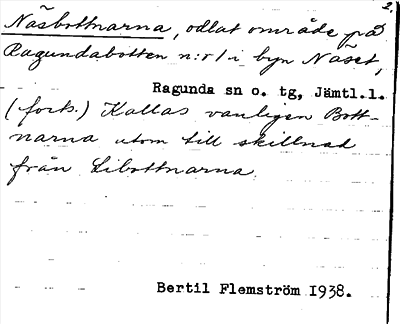 2.
Näsbottnarna, odlat område på
Ragundabotten n:r 1 i byn Näset,
Ragunda sn o. tg, Jämtl.l.
(forts.) Kallas vanligen Bott-
narna utom till skillnad
från Libottnarna.
Bertil Flemström 1938.